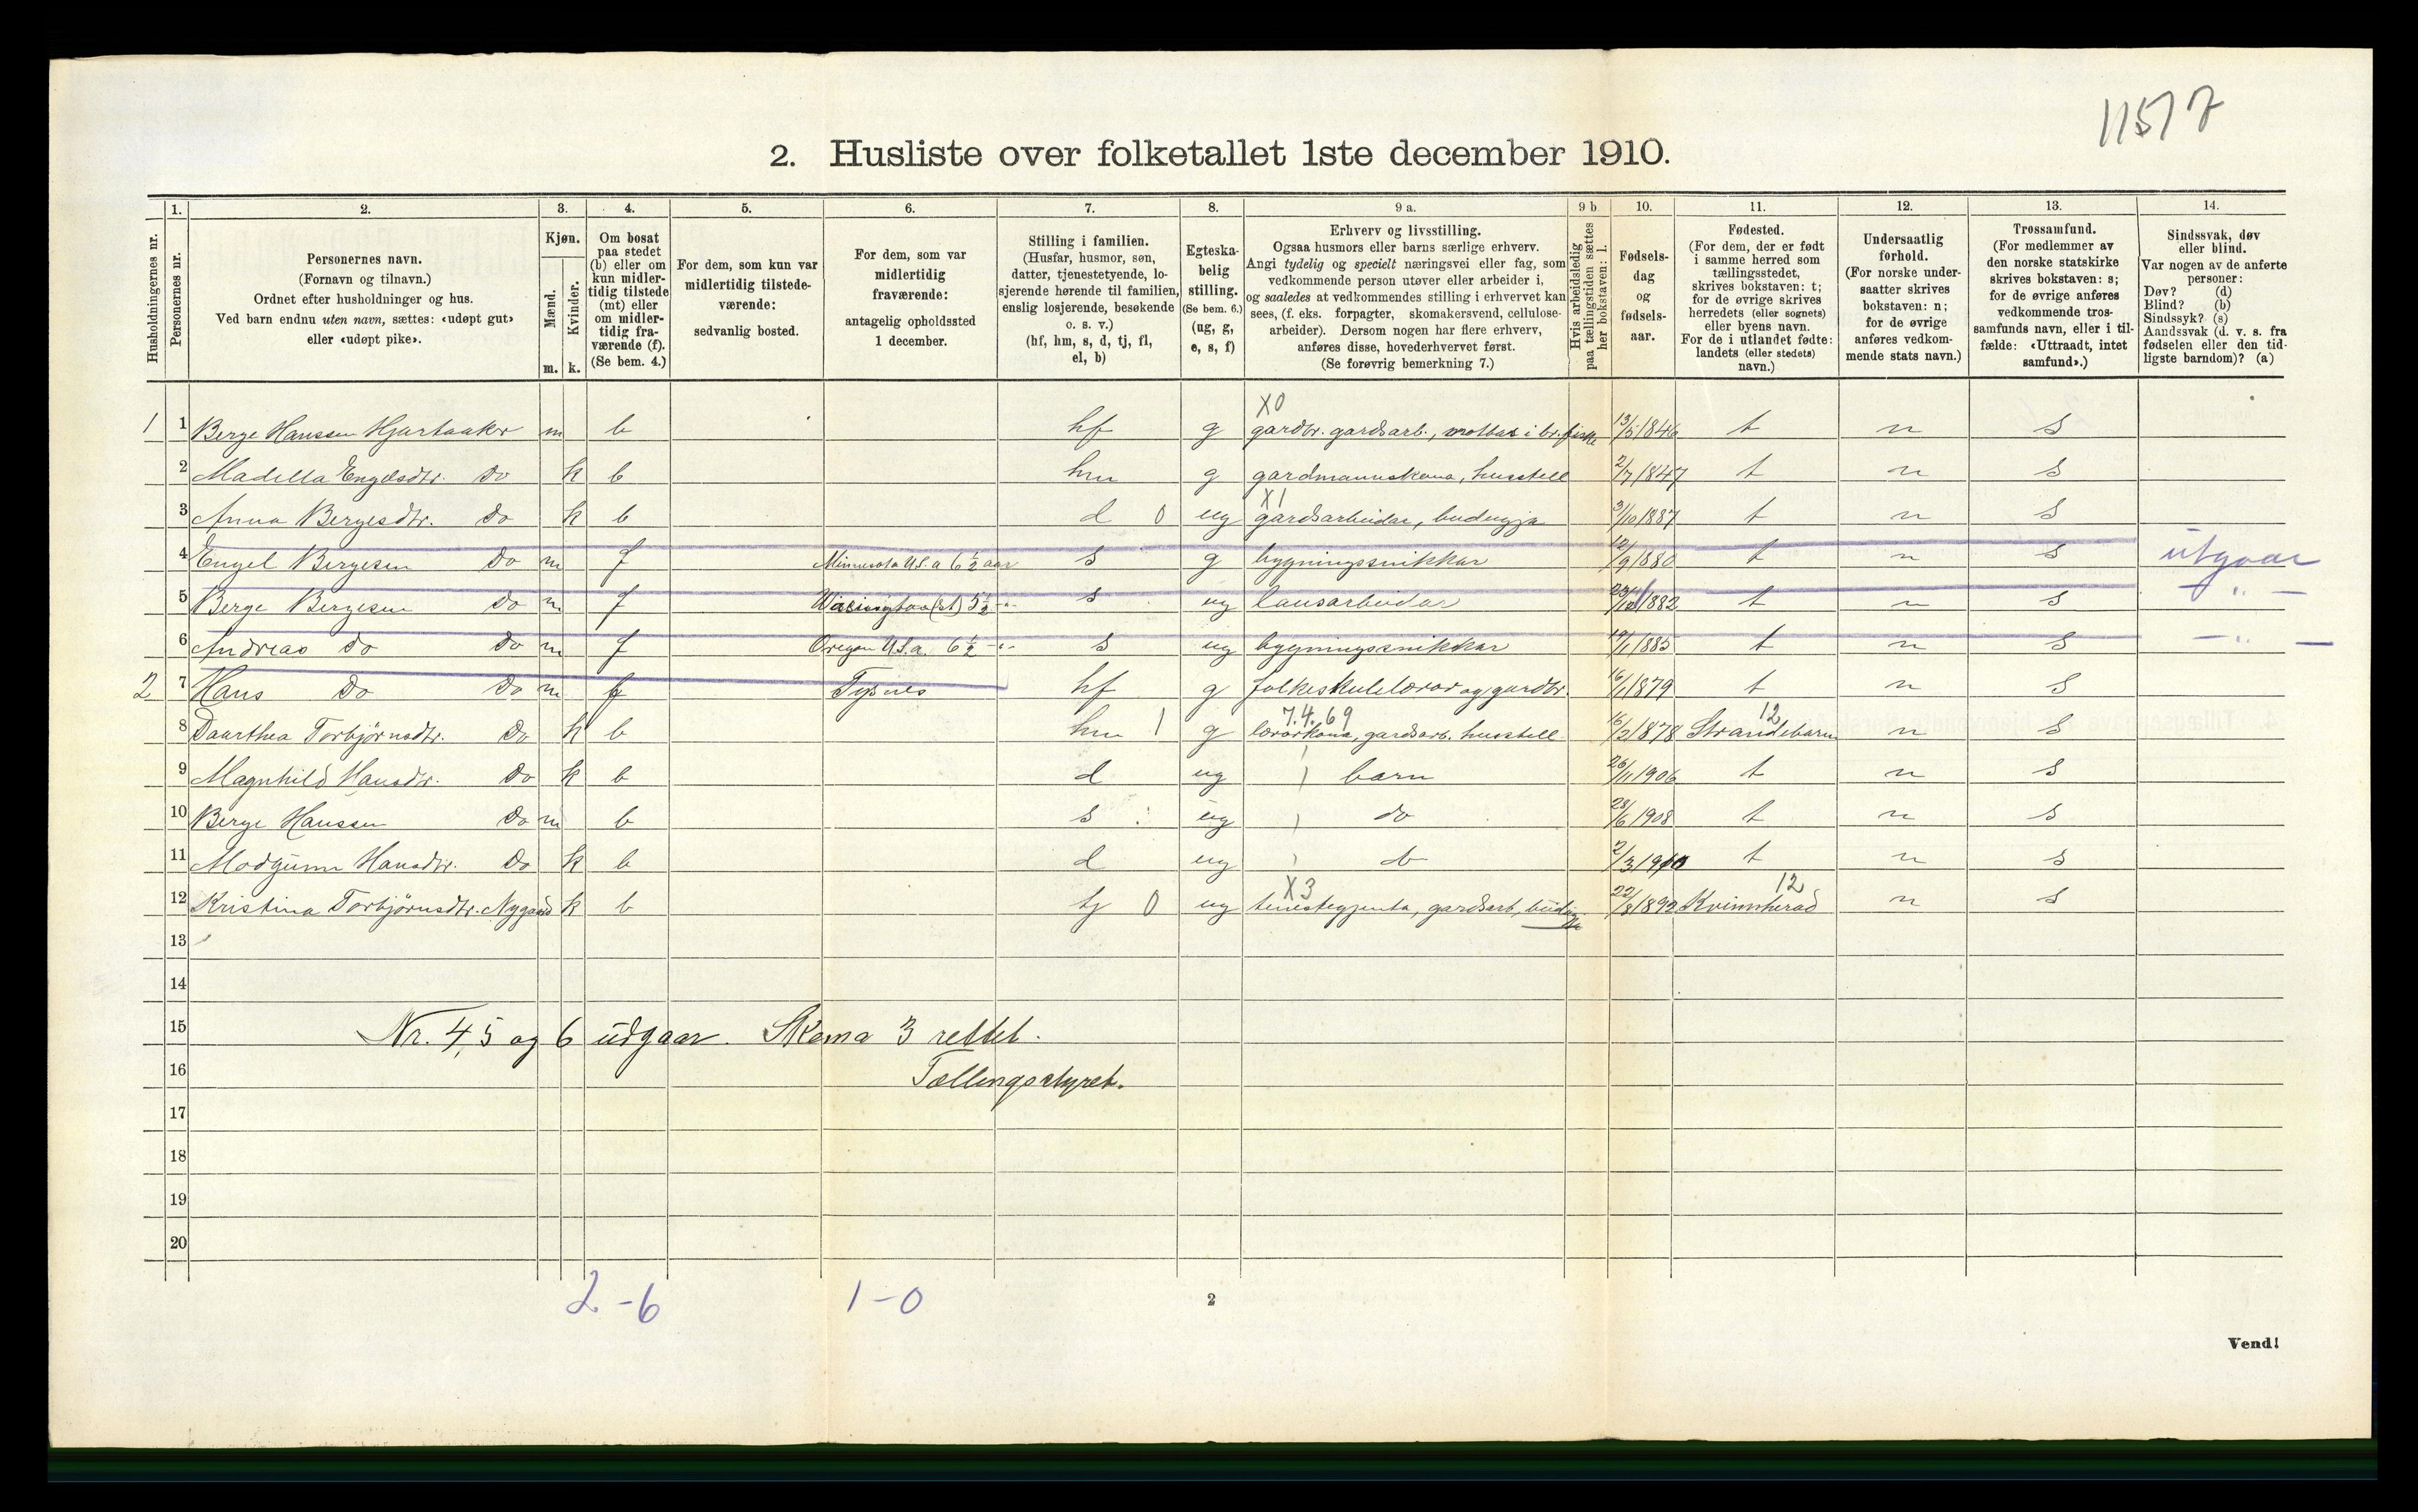 11517
2. Husliste over folketallet 1ste december 1910.
Husholdningernes nr.
1. Personernes nr.
2. Personernes navn.
(Fornavn og tilnavn.)
Ordnet efter husholdninger og hus.
Ved barn endnu uten navn, sættes: «udøpt gut»
eller «udøpt pike».
3. Kjøn.
Mænd. Kvinder.
m. k.
4. Om bosat
paa stedet
(b) eller om
kun midler-
tidig tilstede
(mt) eller
om midler-
tidig fra-
værende (f).
(Se bem. 4.)
5. For dem, som kun var
midlertidig tilstede-
værende:
sedvanlig bosted.
6. For dem, som var
midlertidig
fraværende:
antagelig opholdssted
1 december.
7. Stilling i familien.
(Husfar, husmor, søn,
datter, tjenestetyende, lo-
sjerende hørende til familien,
enslig losjerende, besøkende
o. s. v.)
(hf, hm, s, d, tj, fl,
el, b)
8. Egteska-
belig
stilling.
(Se bem. 6.)
(ug, g,
e, s, f)
9 a. Erhverv og livsstilling.
Ogsaa husmors eller barns særlige erhverv.
Angi tydelig og specielt næringsvei eller fag, som
vedkommende person utøver eller arbeider i,
og saaledes at vedkommendes stilling i erhvervet kan
sees, (f. eks. forpagter, skomakersvend, cellulose-
arbeider). Dersom nogen har flere erhverv,
anføres disse, hovederhvervet først.
(Se forøvrig bemerkning 7.)
9 b Hvis arbeidsledig
paa tællingstiden sættes
her bokstaven: l.
10. Fødsels-
dag
og
fødsels-
aar.
11. Fødested.
(For dem, der er født
i samme herred som
tællingsstedet,
skrives bokstaven: t;
for de øvrige skrives
herredets (eller sognets)
eller byens navn.
For de i utlandet fødte:
landets (eller stedets)
navn.)
12. Undersaatlig
forhold.
(For norske under-
saatter skrives
bokstaven: n;
for de øvrige
anføres vedkom-
mende stats navn.)
13. Trossamfund.
(For medlemmer av
den norske statskirke
skrives bokstaven: s;
for de øvrige anføres
vedkommende tros-
samfunds navn, eller i til-
fælde: «Uttraadt, intet
samfund».)
14. Sindssvak, døv
eller blind.
Var nogen av de anførte
personer:
Døv? (d)
Blind? (b)
Sindssyk? (s)
Aandssvak (d. v. s. fra
fødselen eller den tid-
ligste barndom)? (a)
X0
1 1 Berge Hanssen Hjartaaker m b hf g gardbr. gardsarb., i br. fiske 13/5 1846 t n s
2 Madella Engelsdtr. Do k b hm g gardmannskona, husstell 2/7 1847 t n s
X1
3 Anna Bergesdtr. Do k b d 0 ug gardsarbeidar, budeigja 3/10 1887 t n s
4 Engel Bergesen Do m f Minnesota U.S.a 6½ aar s g bygningssnikkar 12/9 1880 t n s utgaar
5 Berge Bergesen Do m f Wasington (st) 5½ -"- s ug lausarbeidar 1882 t n s -"-
6 Andreas Do Do m f Oregon U.S.a. 6½ -"- s ug bygningssnikkar 19/1 1885 t n s -"-
2 7 Hans Do Do m f Tysnes hf g folkeskulelærar og gardbr. 16/1 1879 t n s
7.4.69 12
8 Daarthea Torbjørnsdtr. Do k b hm 1 g lærarkona, gardsarb. husstell 16/2 1878 Strandebarm n s
9 Magnhild Hansdtr. Do k b d ug barn 26/11 1906 t n s
10 Berge Hanssen Do m b s ug do 28/6 1908 t n s
11 Modgunn Hansdtr. Do k b d ug do 2/3 1910 t n s
X3 12
12 Kristina Torbjørnsdtr. Nygaard k b tj 0 ug tenestegjenta, gardsarb, budeigja 22/8 1892 Kvinnherad n s
13
14
15 Nr. 4, 5 og 6 udgaar. Skema 3 rettet.
16 Tællingsstyret.
17
18
19
20
2-6 1-0
2
Vend!